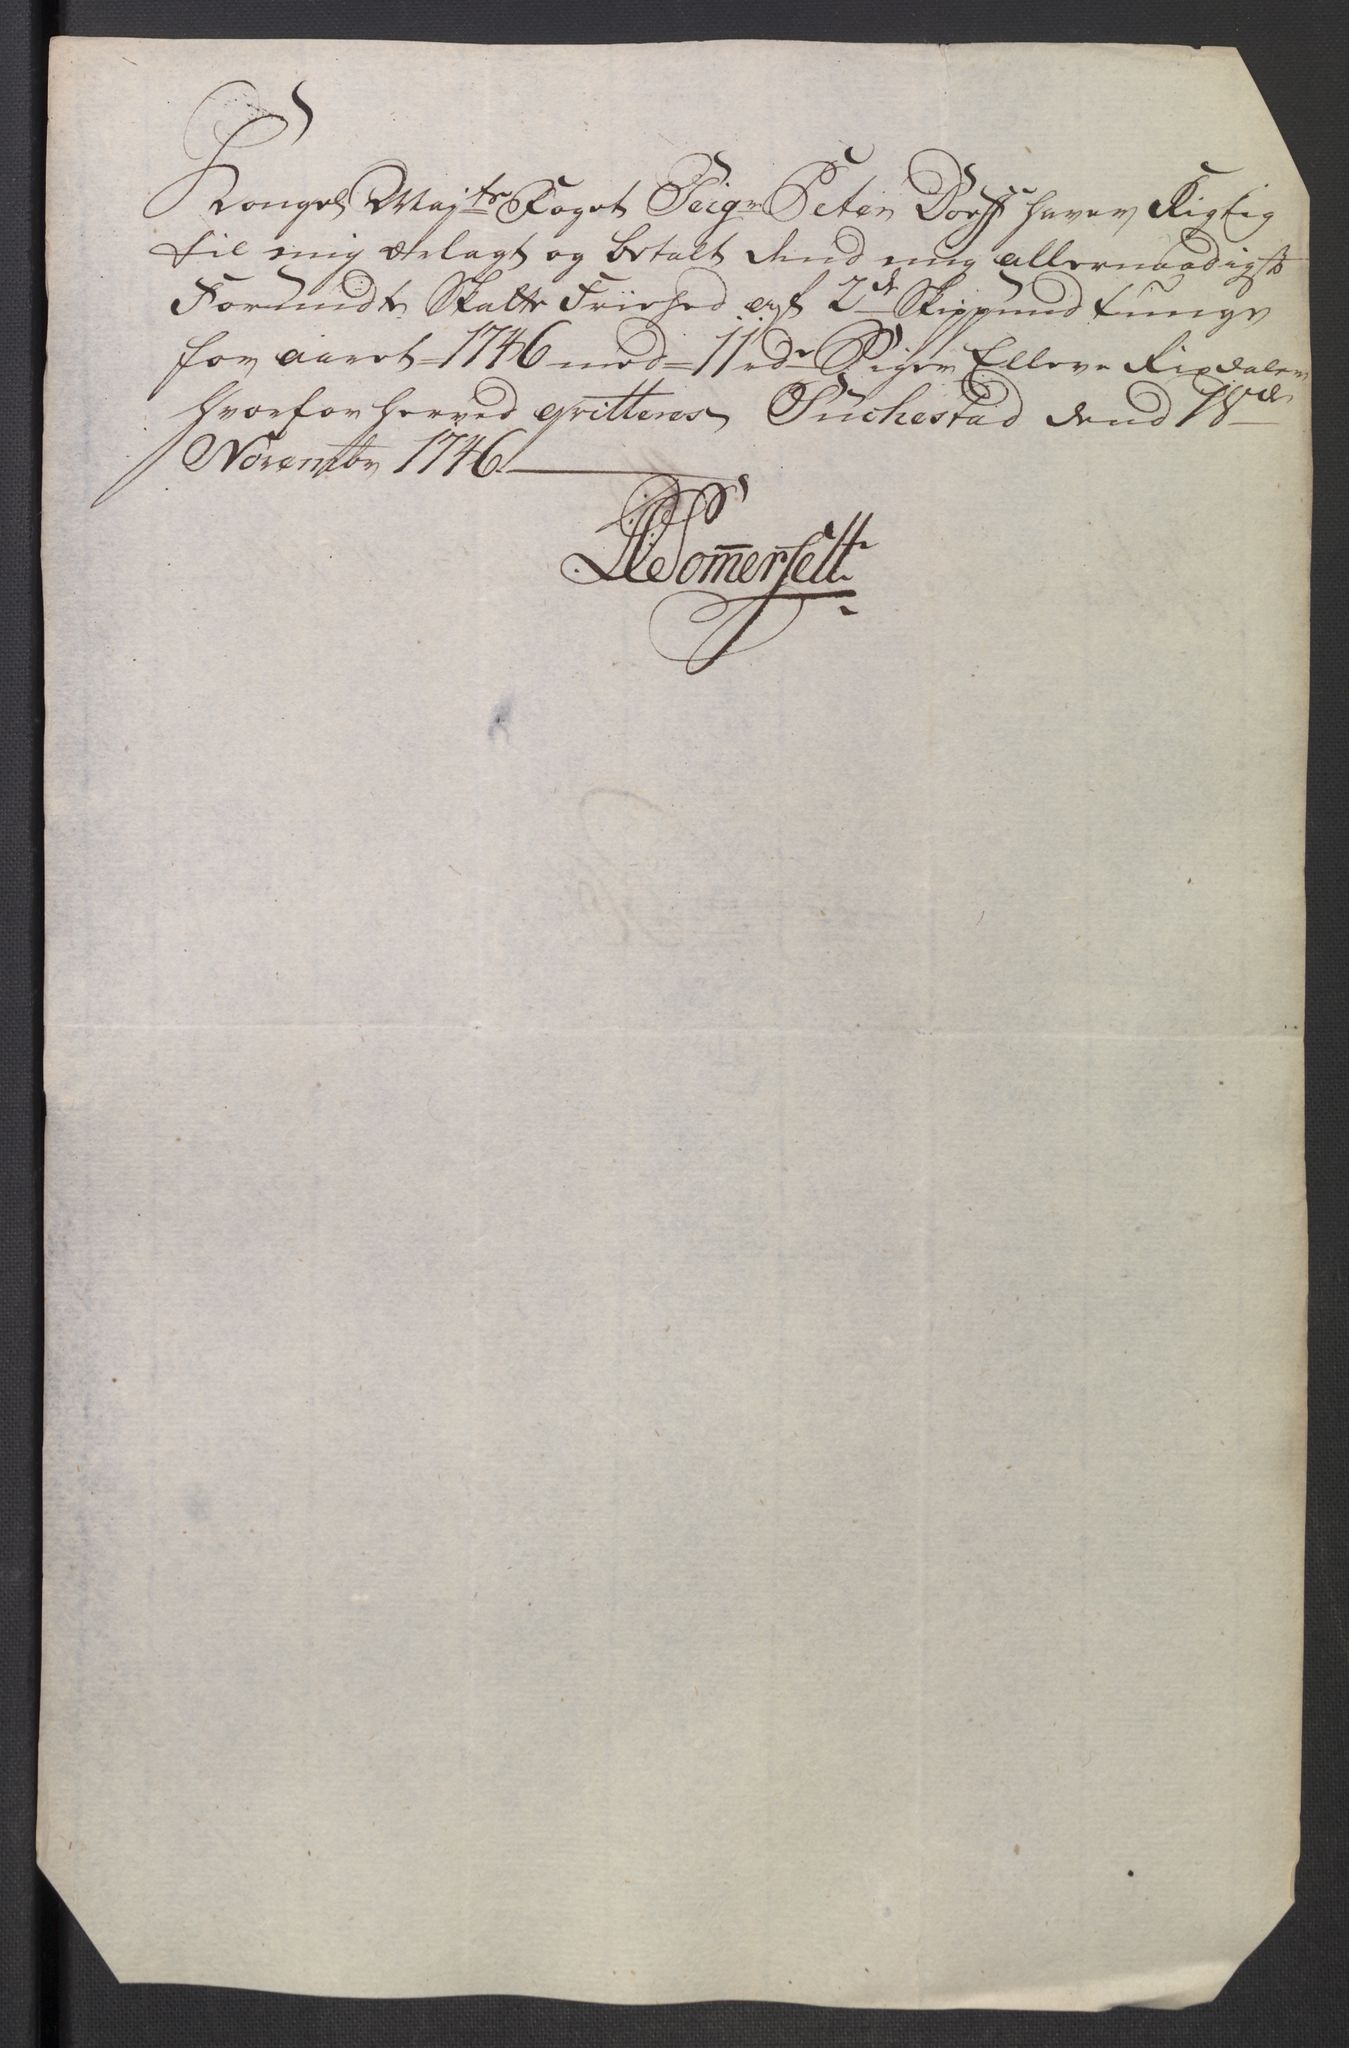 Kongel Maj:ts Foget Seigr Peter Dorff haver Rigtig
til mig ærlagt og betalt dend mig allernaadigst
Forundte Skatte Friehed af 2de Skippund tunge
for aaret 1746 med 11 rdr Siger Elleve Rixdaler
hvorfor herved qvitteres, Suchestad dend 18de
Novembr 1746
Sommerfelt